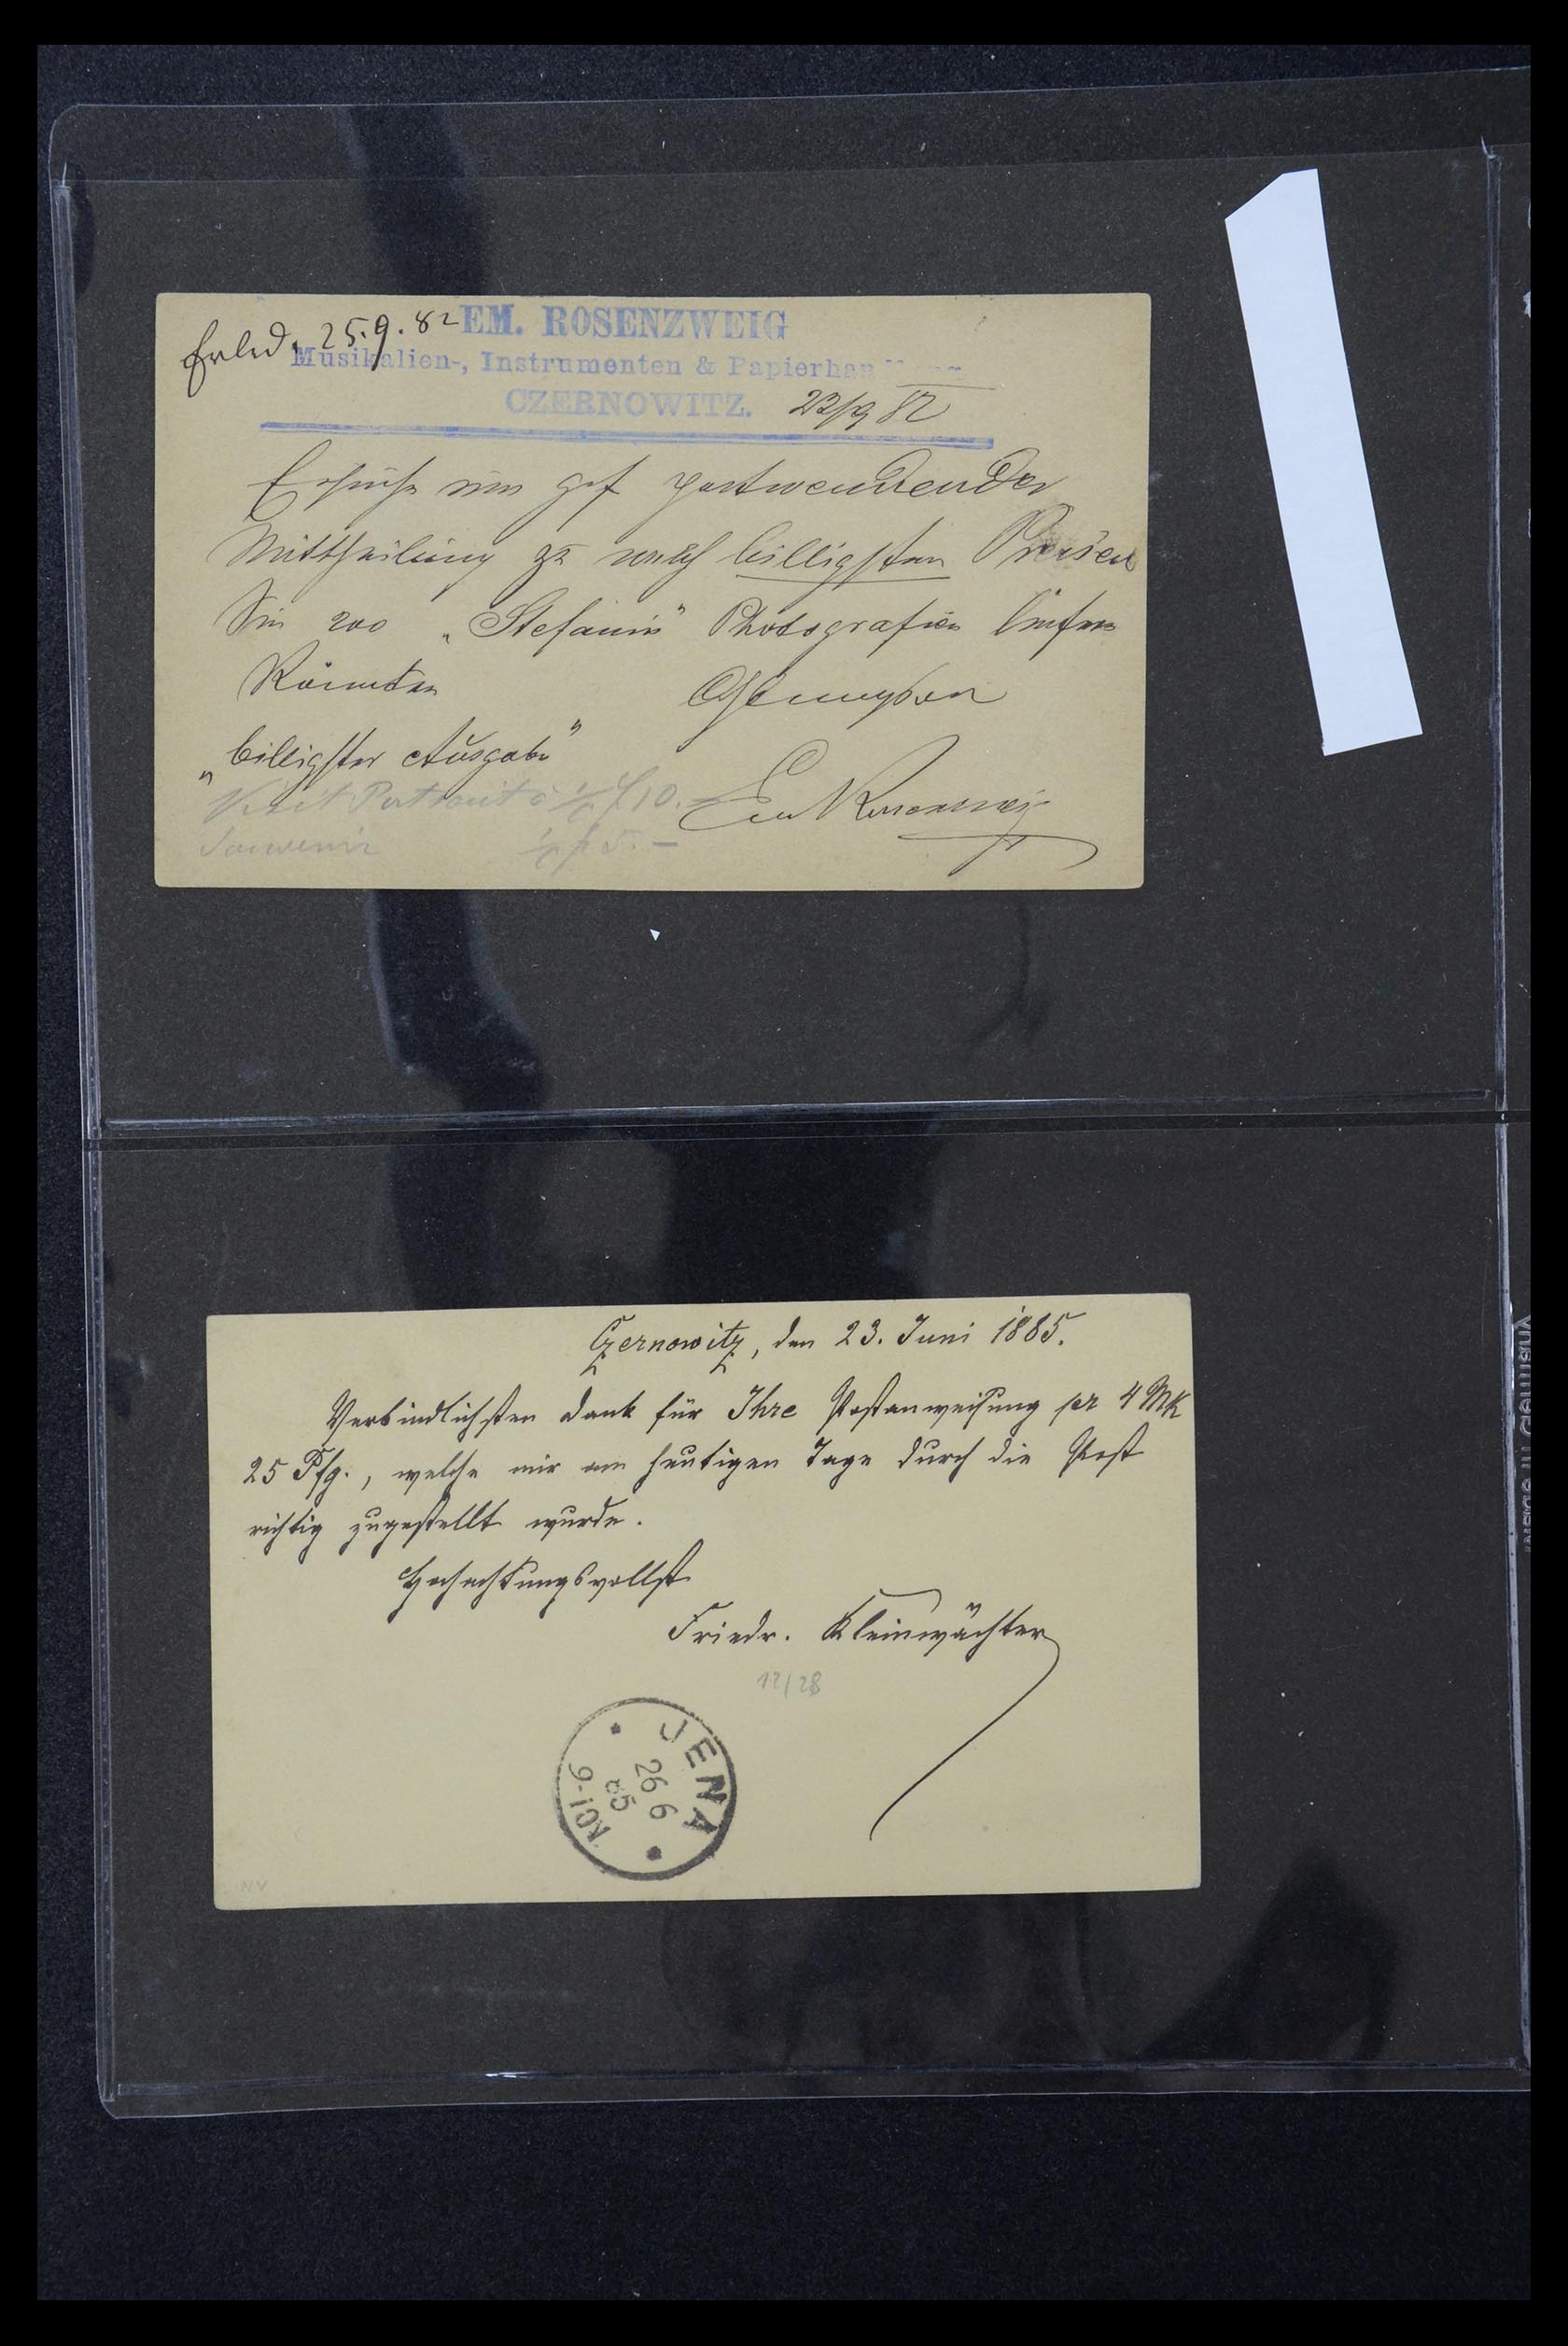 Erled. 25.9.82
EM. ROSENZWEIG
Musikalien-, Instrumenten & Papierhan
CZERNOWITZ. 23/9 82
Ersuche um gef postwendender
Mittheilung zu welch billigsten Preisen
Sie 200 „Stefanie" Photografien liefern
Könnten
„billigster Ausgabe"
Visit Portrait à 10.
Souvenir 5.–
Em Rosenzweig
Czernowitz, den 23. Juni 1885.
Verbindlichsten Dank für Ihre Postanweisung pr 4 Mk
25 Pfg., welche mir am heutigen Tage durch die Post
richtig zugestellt wurde.
Hochachtungsvollst
Friedr. Kleinwächter
12/28
JENA
26 6
85
9-10N
NV